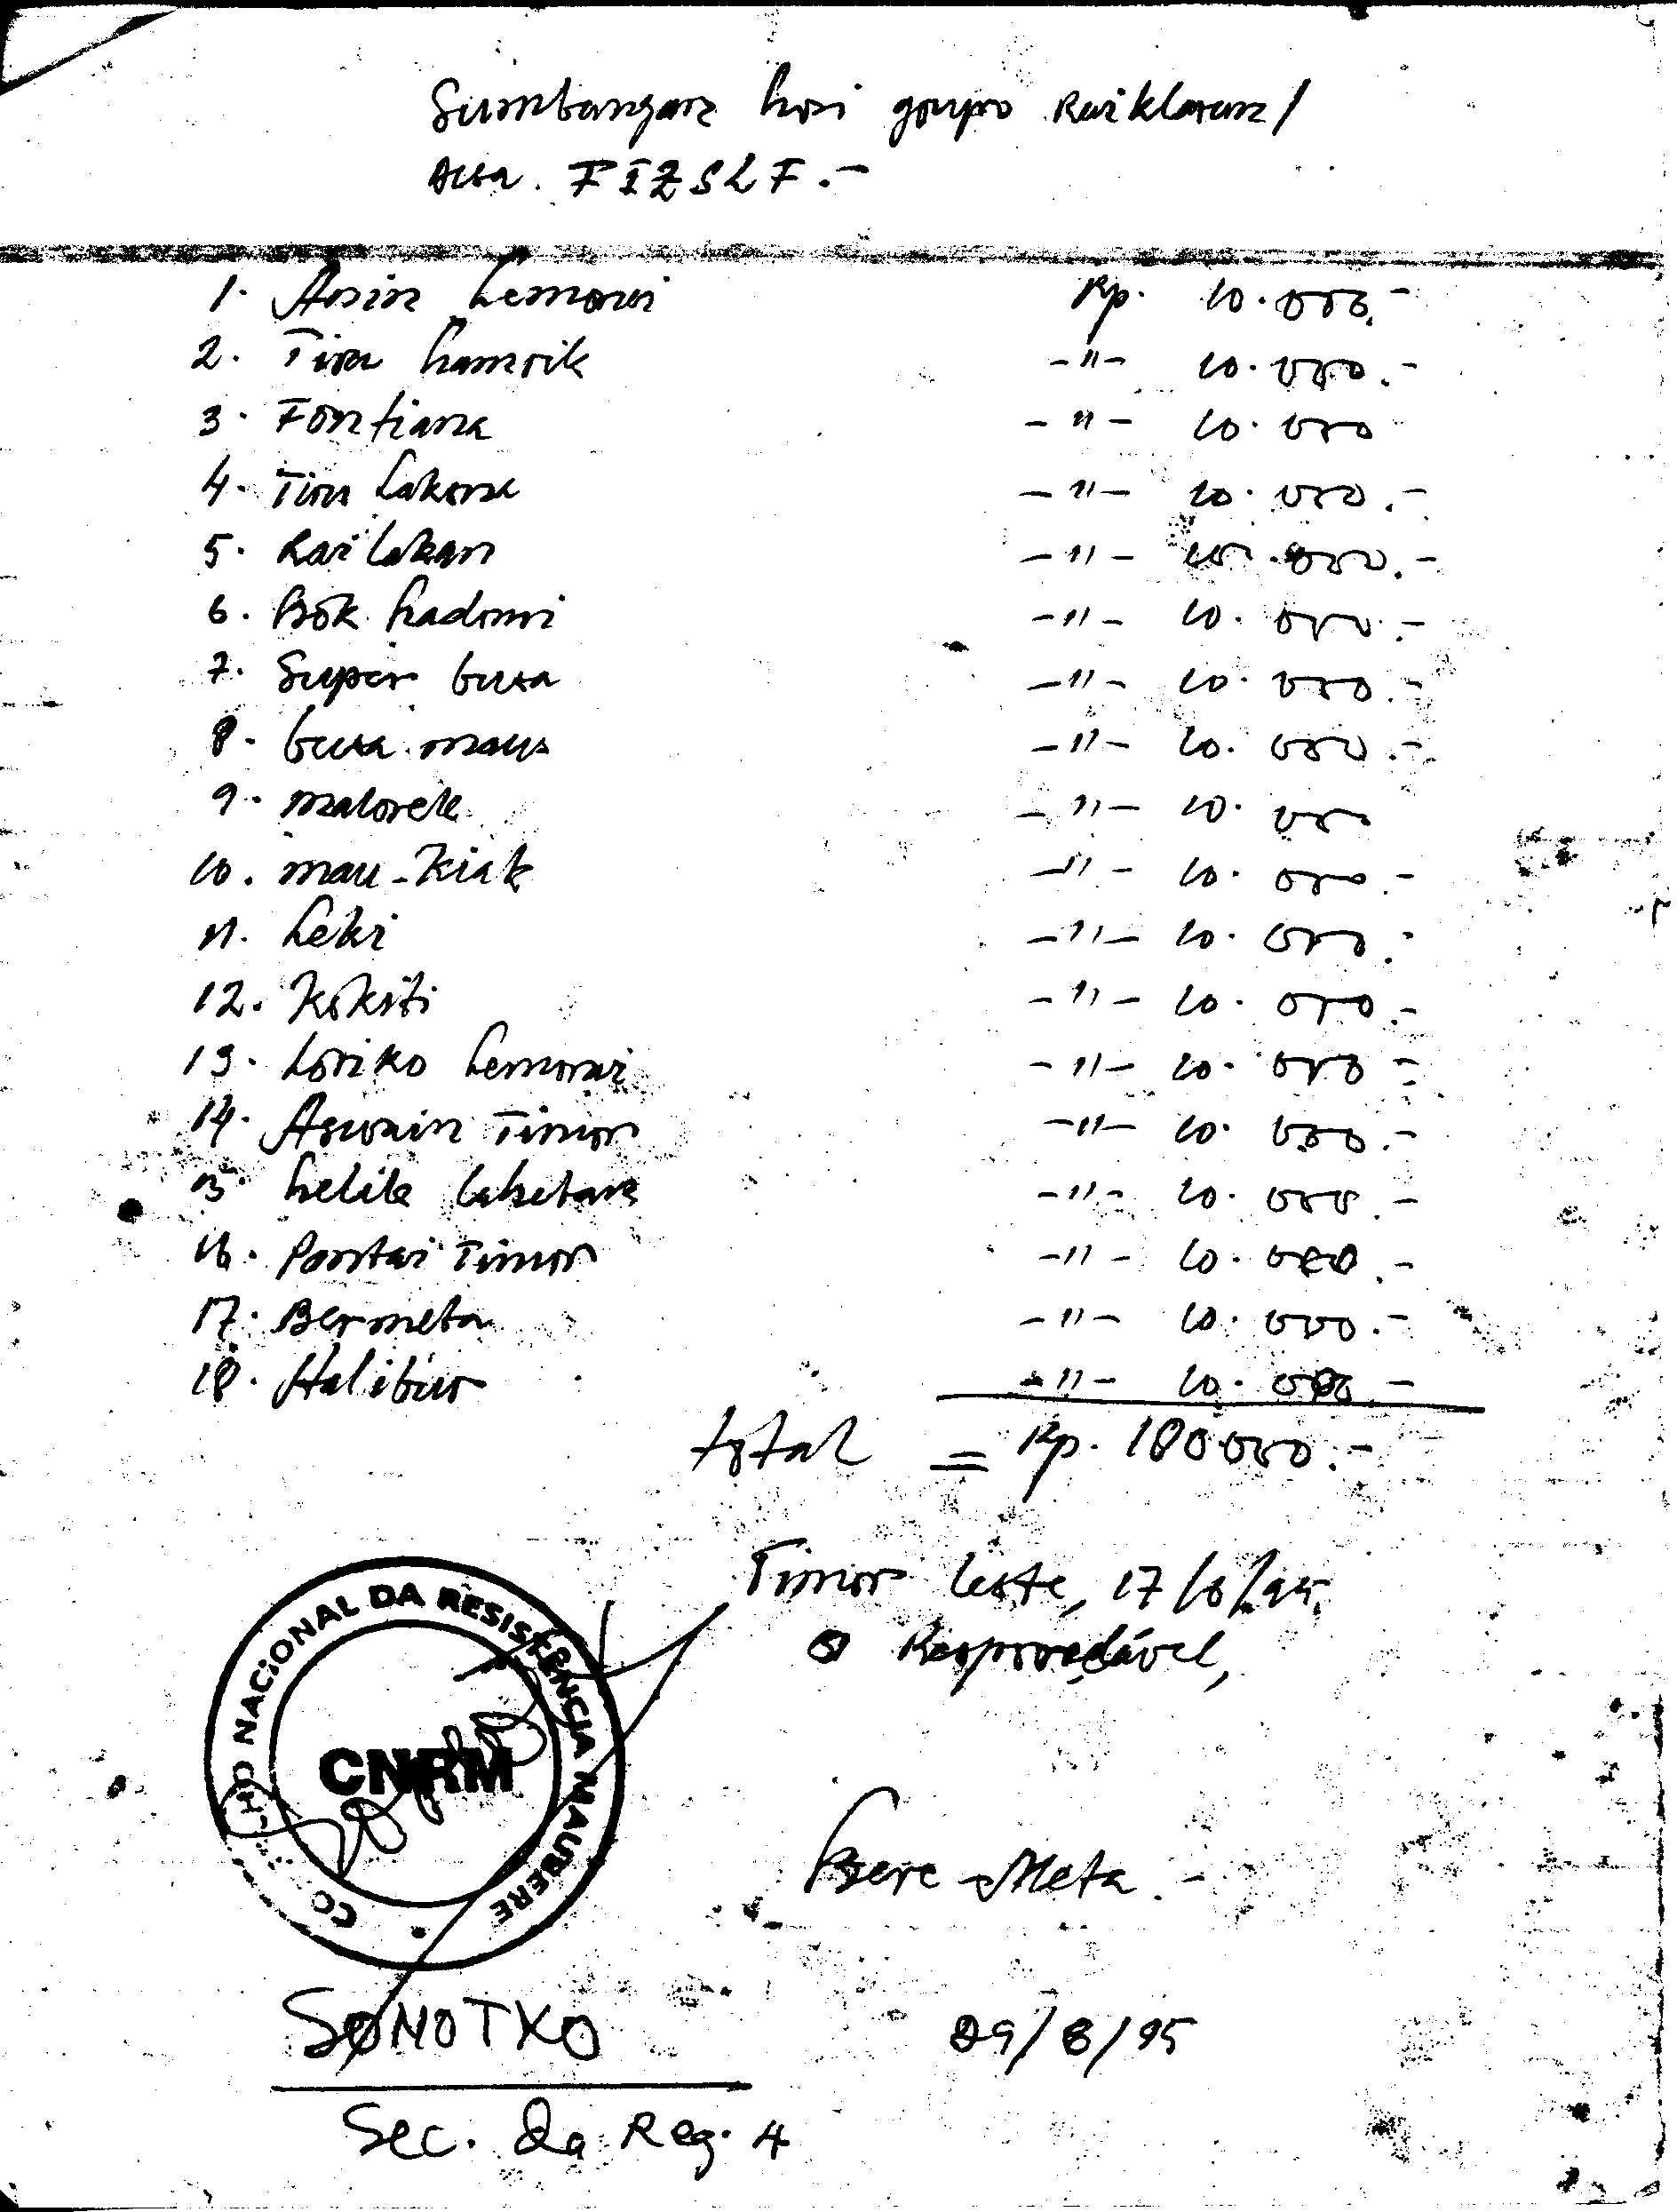 Sumbangan hosi grupo Raiklaran/
Aisa. FIZSLF.-
1. Asin Lemorai Rp. 10.000.-
2. Tira hamrik -"- 10.000.-
3. Fontiana -"- 10.000
4. Tiru Lakon -"- 10.000.-
5. Rai lakan -"- 10.000.-
6. Bok hadomi -"- 10.000.-
7. Super busa -"- 10.000.-
8. busa maus -"- 10.000.-
9. malorek -"- 10.000
10. mau-Kiak -"- 10.000.-
11. Leki -"- 10.000.-
12. Kokoti -"- 10.000.-
13. Loriko Lemorai -"- 10.000.-
14. Aswain Timor -"- 10.000.-
15. helik laketan -"- 10.000.-
16. Pantai Timor -"- 10.000.-
17. Bermeta -"- 10.000.-
18. Halibur -"- 10.000.-
total = Rp. 180.000.-
Timor Leste, 17/6/95.
O Responsável,
CO NACIONAL DA RESISTÊNCIA MAUBERE
CNRM
Bere-Meta.-
SONOTXO 29/8/95
Sec. da Reg. 4